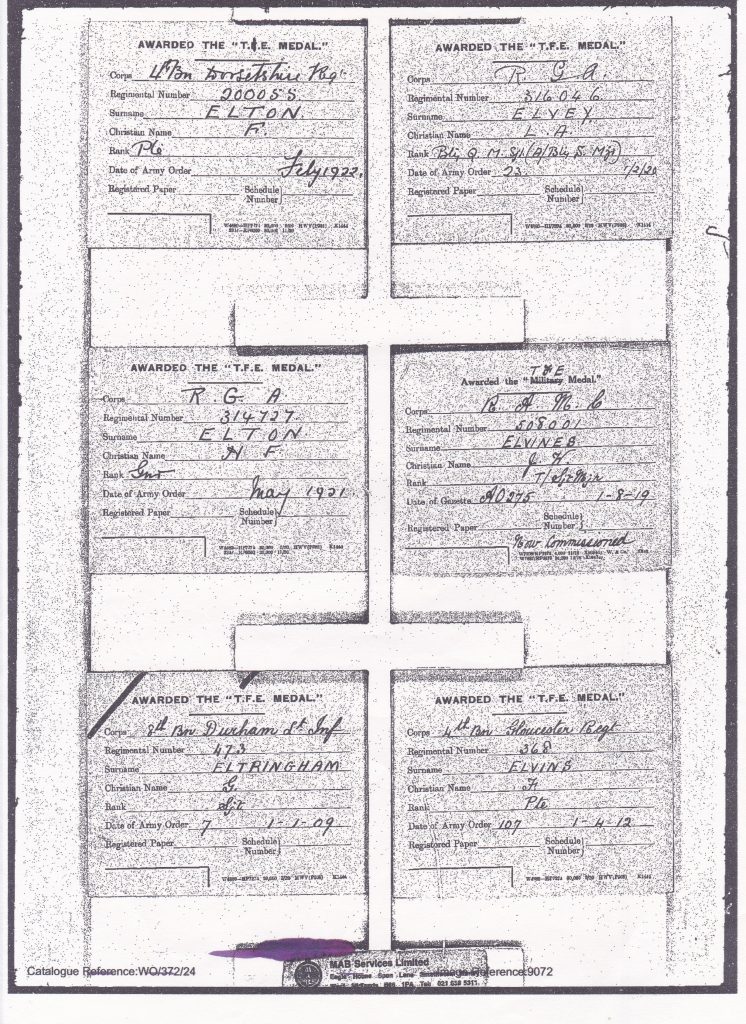 AWARDED THE "T.F.E. MEDAL."
Corps 4th Bn Dorsetshire Regt
Regimental Number 200055
Surname ELTON
Christian Name F.
Rank Pte
Date of Army Order July 1922.
Registered Paper Schedule Number
AWARDED THE "T.F.E. MEDAL."
Corps R G A.
Regimental Number 316046
Surname ELVEY
Christian Name L. A
Rank Bty Q M Sjt (A/Bty S. Mjr)
Date of Army Order 23 1/2/20
Registered Paper Schedule Number
AWARDED THE "T.F.E. MEDAL."
Corps R. G. A
Regimental Number 314727
Surname ELTON
Christian Name H F
Rank Gnr
Date of Army Order May 1921
Registered Paper Schedule Number
T F E
Awarded the "Military Medal."
Corps R A M C
Regimental Number 508001
Surname ELVINES
Christian Name J H
Rank T/Sjt Mjr
Date of Gazette AO275 1-8-19
Schedule Number
Registered Paper
Now Commissioned
AWARDED THE "T.F.E. MEDAL."
Corps 8th Bn Durham Lt Inf
Regimental Number 473
Surname ELTRINGHAM
Christian Name G.
Rank Sjt
Date of Army Order 7 1-1-09
Registered Paper Schedule Number
AWARDED THE "T.F.E. MEDAL."
Corps 4th Bn Gloucester Regt
Regimental Number 368
Surname ELVINS
Christian Name
Rank Pte
Date of Army Order 107 1-4-12
Registered Paper Schedule Number
MAB Services Limited
Catalogue Reference:WO/372/24 Image Reference:9072